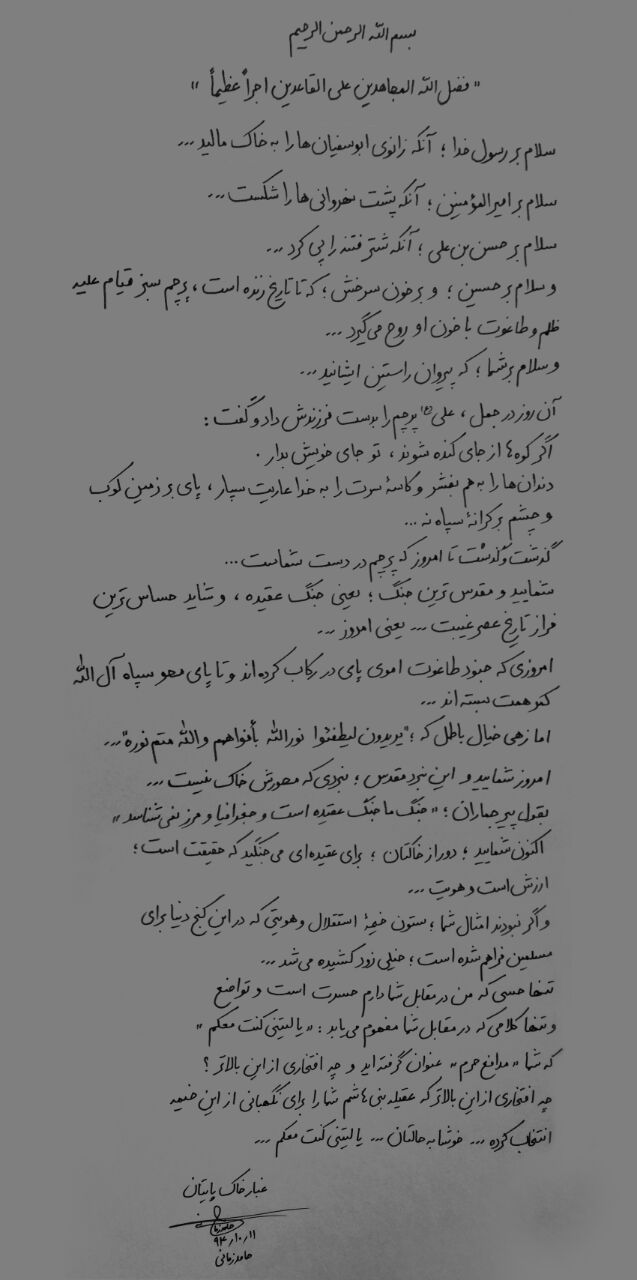 بسم الله الرحمن الرحیم
« فضل الله المجاهدین علی القاعدین اجراً عظیماً »
سلام بر رسول خدا ؛ آنکه زانوی ابوسفیان ها را به خاک مالید ...
سلام بر امیرالمؤمنین ؛ آنکه پشت نهروانی ها را شکست ...
سلام بر حسن بن علی ؛ آنکه شتر فتنه را پی کرد ...
و سلام بر حسین ؛ و بر خون سرخش ؛ که تا تاریخ زنده است ، پرچم سبز قیام علیه
ظلم و طاغوت با خون او روح می گیرد ...
و سلام بر شما ؛ که پیروان راستین ایشانید ...
آن روز در جمل ، علی (ع) پرچم را بدست فرزندش داد و گفت :
اگر کوه ها از جای کنده شوند ، تو جای خویش بدار .
دندان ها را به هم بفشر و کاسهٔ سرت را به خدا عاریت سپار ، پای بر زمین کوب
و چشم بر کرانهٔ سپاه نه ...
گذشت و گذشت تا امروز که پرچم در دست شماست ...
شمایید و مقدس ترین جنگ ؛ یعنی جنگ عقیده ، و شاید حساس ترین
فراز تاریخ عصر غیبت ... یعنی امروز ...
امروزی که جنود طاغوت اموی پای در رکاب کرده اند و تا پای محو سپاه آل الله
کمر همت بسته اند ...
اما زهی خیال باطل که ؛ "یریدون لیطفئوا نور الله بأفواههم و الله متم نوره" ...
امروز شمایید و این نبرد مقدس ؛ نبردی که محورش خاک نیست ...
بقول پیر جماران ؛ « جنگ ما جنگ عقیده است و جغرافیا و مرز نمی شناسد »
اکنون شمایید ؛ دور از خاکتان ؛ برای عقیده ای می جنگید که حقیقت است ؛
ارزش است و هویت ...
و اگر نبودند امثال شما ؛ ستون خیمهٔ استقلال و هویتی که در این کنج دنیا برای
مسلمین فراهم شده است ؛ خیلی زود کشیده می شد ...
تنها حسی که من در مقابل شما دارم حسرت است و تواضع
و تنها کلامی که در مقابل شما مفهوم می یابد : « یا لیتنی کنت معکم »
که شما « مدافع حرم » عنوان گرفته اید و چه افتخاری از این بالاتر ؟
چه افتخاری از این بالاتر که عقیله بنی هاشم شما را برای نگهبانی از این خیمه
انتخاب کرده ... خوشا به حالتان ... یا لیتنی کنت معکم ...
غبار خاک پایتان
حامد زمانی
۹۴/۱۰/۱۱
حامد زمانی